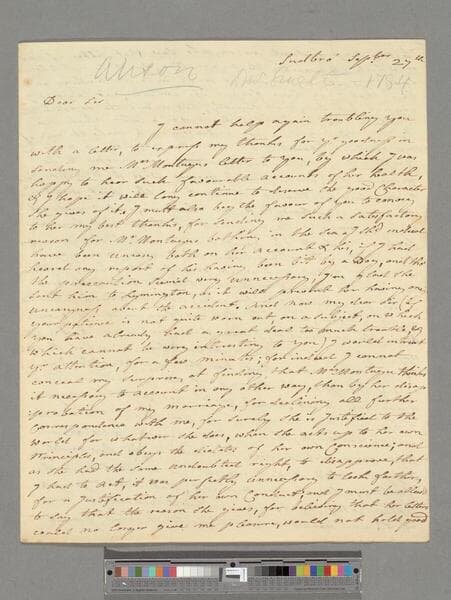 Sept.br 27th
Anson
1784
Dear Sir
I cannot help again troubling you
with a letter, to express my thanks for yr goodness in
sending me Mrs Montagus letter to You, by which I was
happy to hear such favourable accounts of her health,
& I hope it will long continue to deserve the good Character
She gives of it, I must also beg the favour of You to convey
to her my best thanks, for sending me such a satisfactory
reason for Mr Montagus bathing in the sea, I shd indeed
have been uneasy both on his account & hers, if I had
heard any report of his having been bit by a Dog, and tho'
the precaution seems very unnecessary, I'm glad she
sent him to Lymington, as it will prevent her having any
uneasiness about the accident. And now my dear Sir (if
your patience is not quite worn out on a subject, on which
you have already had a great deal too much trouble, &
which cannot be very interesting to You) I would intreat
yr attention, for a few minutes; for indeed I cannot
conceal my surprise, at finding that Mrs Montagu thinks
it necessary to account in any other way, than by her disap
=probation of my marriage, for declining all further
correspondence with me, for surely she is justified to the
world for whatever she does, when she acts up to her own
Principles, and obeys the dictates of her own Conscience; and
as she had the same undoubted right, to disapprove, that
I had to act, it was perfectly unnecessary to look farther,
for a Justification of her own Conduct; and I must be allowed
to say that the reason she gives, for believing that her letters
could no longer give me pleasure, would not hold good